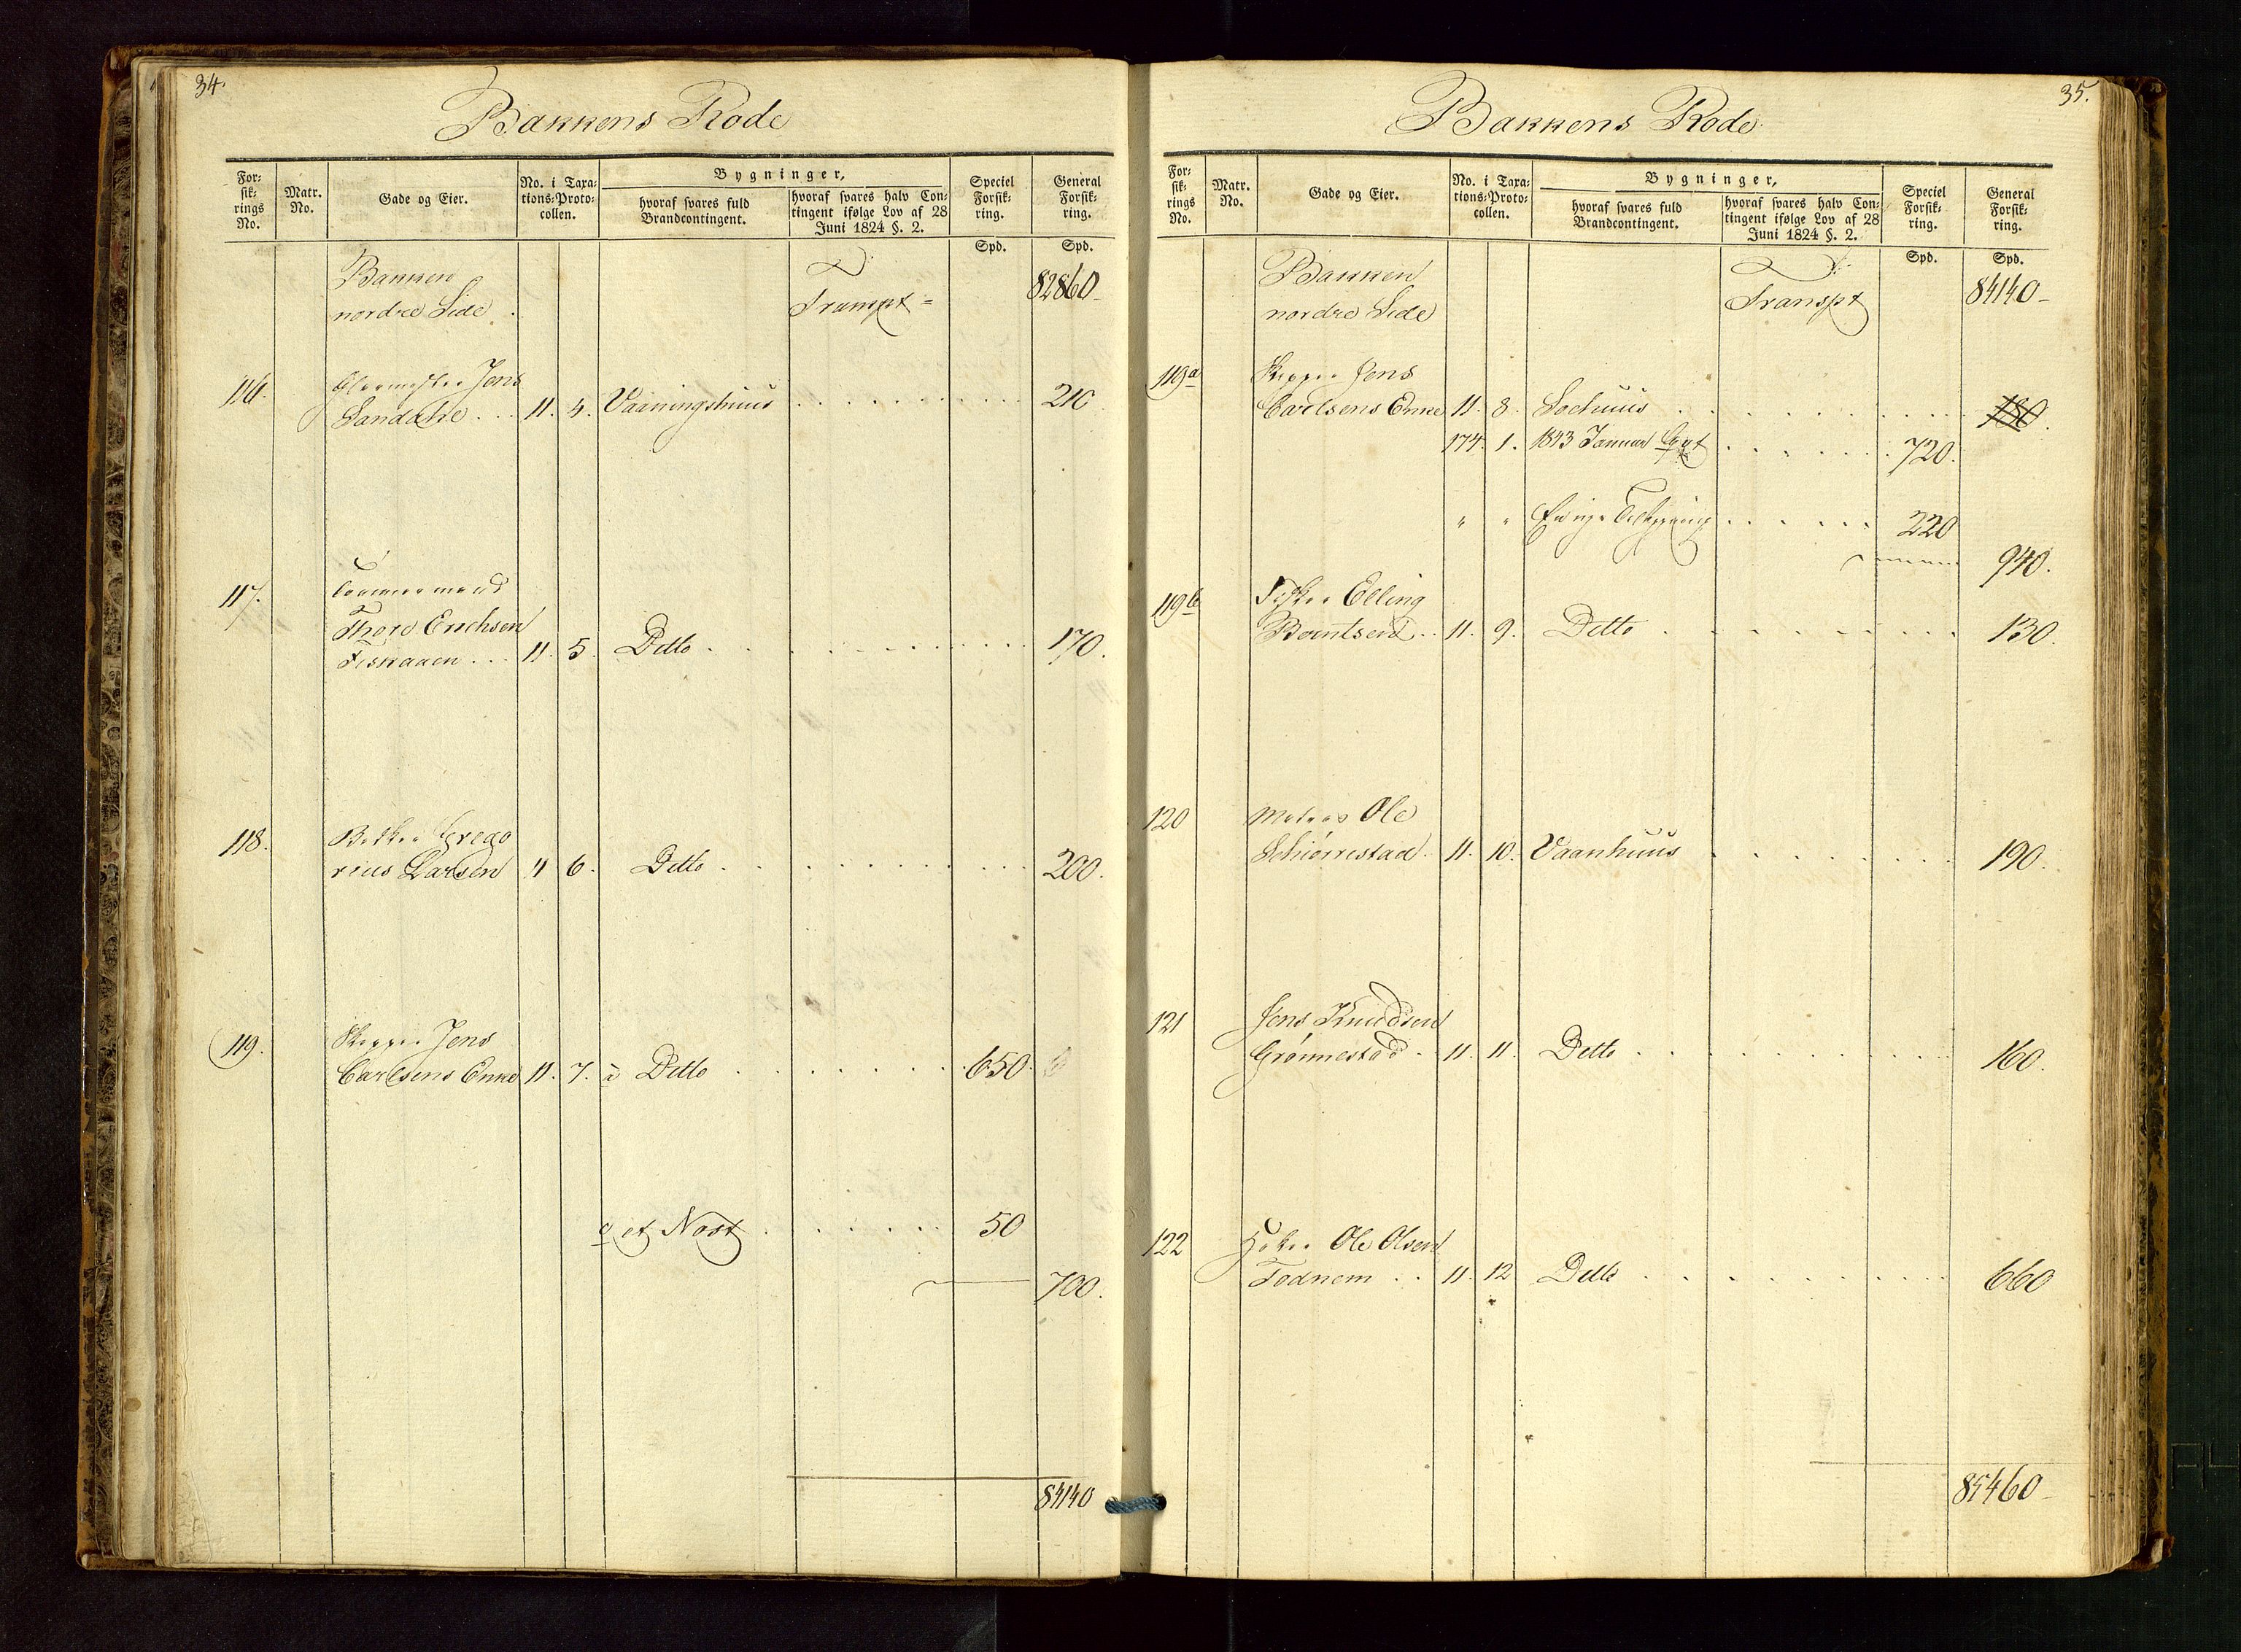 34.
Bakkens Rode
For-
sik-
rings
No.
Matr.
No.
Gade og Eier.
No. i Taxa-
tions-Proto-
collen.
Bygninger,
hvoraf svares fuld
Brandcontingent.
hvoraf svares halv Con-
tingent ifølge Lov af 28
Juni 1824 §. 2.
Speciel
Forsik-
ring.
General
Forsik-
ring.
Spd.
Spd.
Bakken
nordre Side
Transpt
82860
116. Jens
Sandahl 11. 4. Vaaningshuus 210
117. Tømmermand
Thord Erichsen
Fiskaaen 11. 5. Ditto 170.
118. Grego
rius Larsen 11 6. Ditto 200.
119. Skipper Jens
Carlsens Enke 11. 7. a Ditto 650.
et Nøst 50
700.
84140
35.
Bakkens Rode.
For-
sik-
rings
No.
Matr.
No.
Gade og Eier.
No. i Taxa-
tions-Proto-
collen.
Bygninger,
hvoraf svares fuld
Brandcontingent.
hvoraf svares halv Con-
tingent ifølge Lov af 28
Juni 1824 §. 2.
Speciel
Forsik-
ring.
General
Forsik-
ring.
Spd.
Spd.
Bakken
nordre Side
Transpt
84140
119a Skipper Jens
Carlsens Enke 11. 8. Søehuus 180.
174. 1. 1843 Januar 720.
" " 220
940.
119b Fisker Elling
Berntsen 11. 9. Ditto 130.
120 Matros Ole
Schiørrestad 11. 10. Vaanhuus 190.
121 Jens Knudsen
Grønnestad 11. 11. Ditto 160.
122 Ole Olsen
Todnem 11. 12 Ditto 660
85460